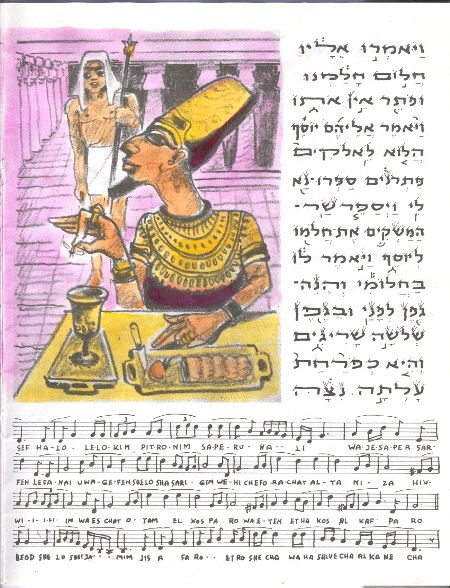 ויאמרו אליו
חלום חלמנו
ופתר אין אתו
ויאמר אליהם יוסף
הלוא לאלקים
פתרנים ספרו-נא
לי ויספר שר-
המשקים את חלמו
ליוסף ויאמר לו
בחלומי והנה-
גפן לפני ובגפן
שלשה שריגים
והיא כפרחת
עלתה נצה
SEF HA-LO- LELO-KIM PIT-RO-NIM SA-PE-RU-NA-- LI WA-JE-SA-PER SAR-
FEN LEFA-NAI UWA-GE-FEN SHA SARI-GIM WE-HI CHEFO-RA-CHAT AL-TA NI-ZA HIW-
WI-I-I-SI-IN WAES CHAT O-TAM EL KOS PA RO WA E-TEN ET HA KOS AL KAF PA RO
BEOD SHE LO MIM JIS A FA RO-- ET RO SHE CHA WA HA SHIVE CHA AL KA NE CHA